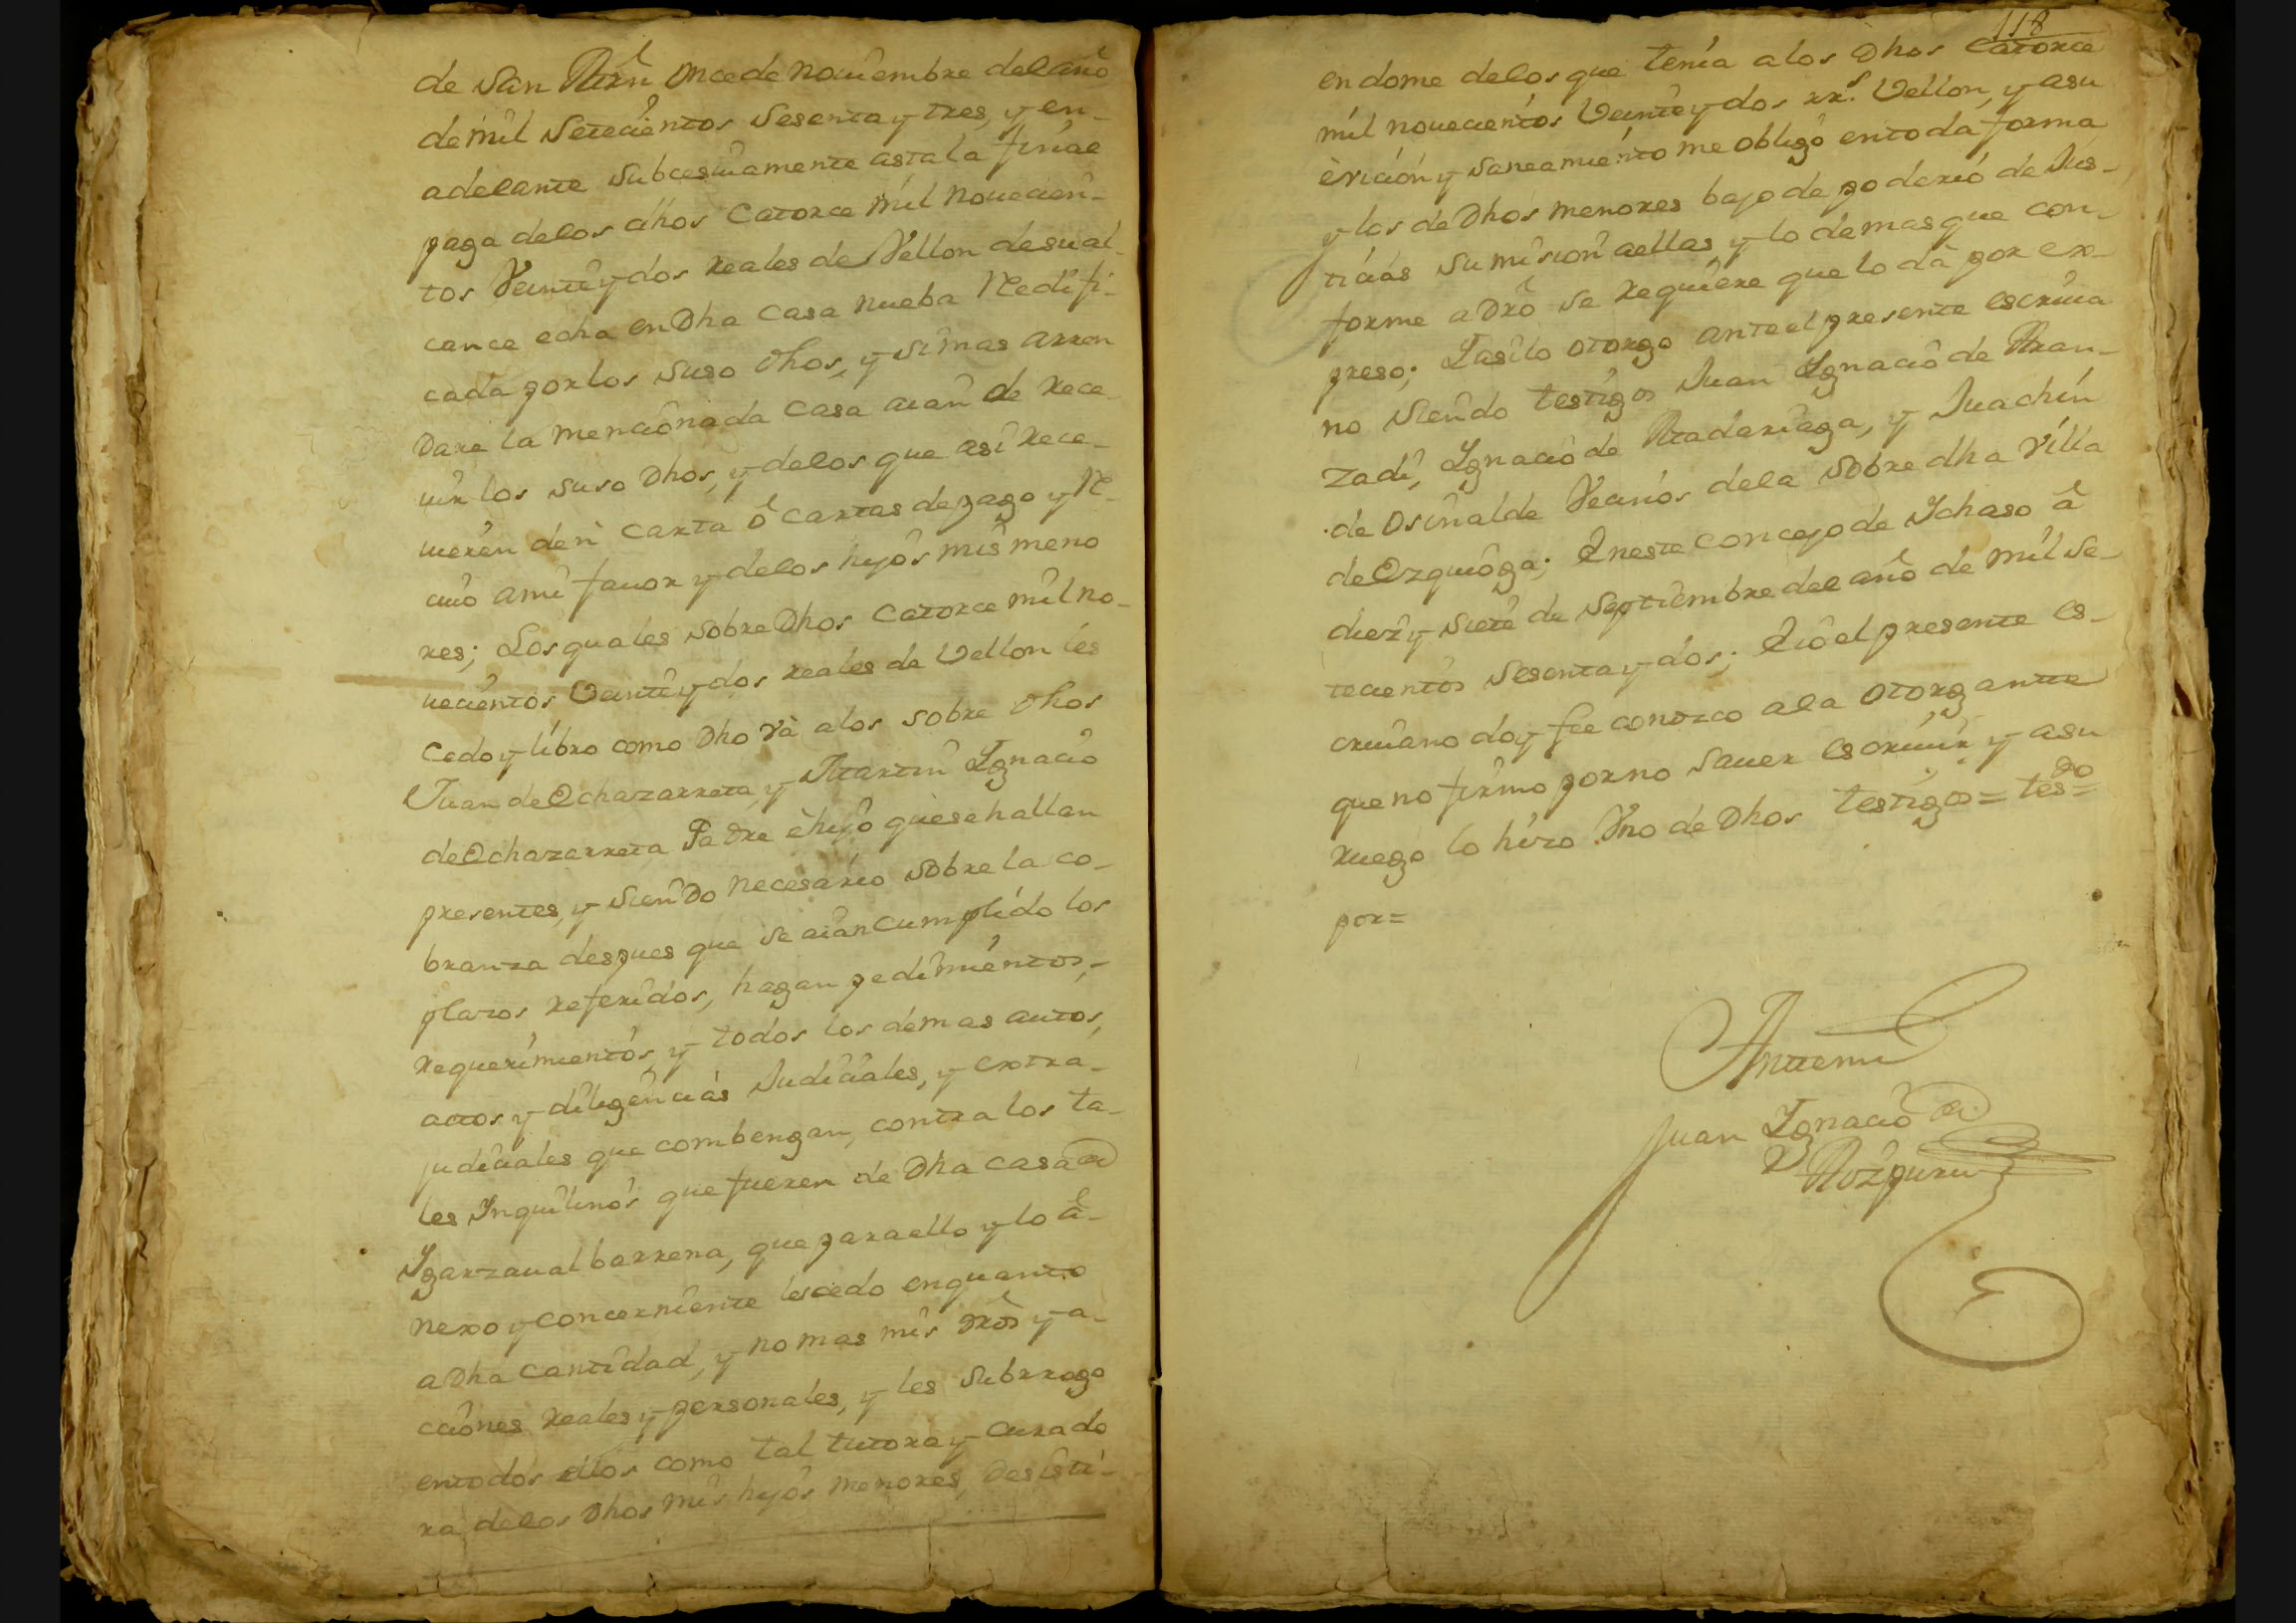 de San Mrñ once de Nouiembre del año
de mil Setecientos Sesenta y tres, y en-
adelante Subcesiuamente asta la finàl
paga delos dhos Catorce mil Nouecien-
tos Veinte y dos Reales de Vellon desu al-
cance echa en Dha Casa nueba Redifi-
cada por los suso dhos, y Si mas arren
Dare la mencionada Casa aian de Rece
uir los suso Dhos, y delos que asi Rece-
uieren den carta ô cartas de pago y R-
ciuo ami fauor y delos hijos mis meno
res; Los quales sobre Dhos Catorce mil no-
uecientos Veinte y dos reales de Vellon les
Cedo y libro como Dho và alos sobre dhos
Juan de Echazarreta, y Martin Ignacio
de Echazarreta Padre è hijo que se hallan
presentes, y Siendo necesario sobre la co-
branza despues que se aian Cumplido los
plazos referidos, hagan pedimientos,-
requerimientos, y todos los demas autos,
actos y diligencias Judiciales, y extra-
judiciales que combengan, contra los ta-
les Inquilinos que fueren de Dha casa de
Igarzaual barrena, que para ello y lo â-
nexo y concerniente les cedo en quanto
a Dha Cantidad, y no mas mis dros y a-
cciones Reales y personales, y les Subrrogo
en todos ellos como tal tutora y curado
ra delos Dhos mis hijos menores, desisti-
118
endome delos que tenia a los Dhos Catorce
mil nouecientos Veinte y dos rrs. Vellon, y asu
èvición y Saneamiento me obligo en toda forma
y los de Dhos menores bajo de poderio de Jus-
ticias Sumision aellas y lo demas que con-
forme a Dro se requiere que lo dà por ex-
preso; Iasilo otorgo ante el presente escriua
no Siendo testigos Juan Ignacio de Aran-
zadi, Ignacio de Madariaga, y Juachin
de Osinalde Vecinos dela sobre dha Villa
de Ezquioga; En este Concejo de Ichaso â
diez y siete de Septiembre del año de mil Se-
tecientos Sesenta y dos; E io el presente es-
criuano doy fee conozco ala otorgante
que no firmo por no Sauer escriuir, y asu
ruego lo hizo Vno de Dhos testigos = tesdo=
por=
Anttemi
Juan Ignacio de
Aozpuru